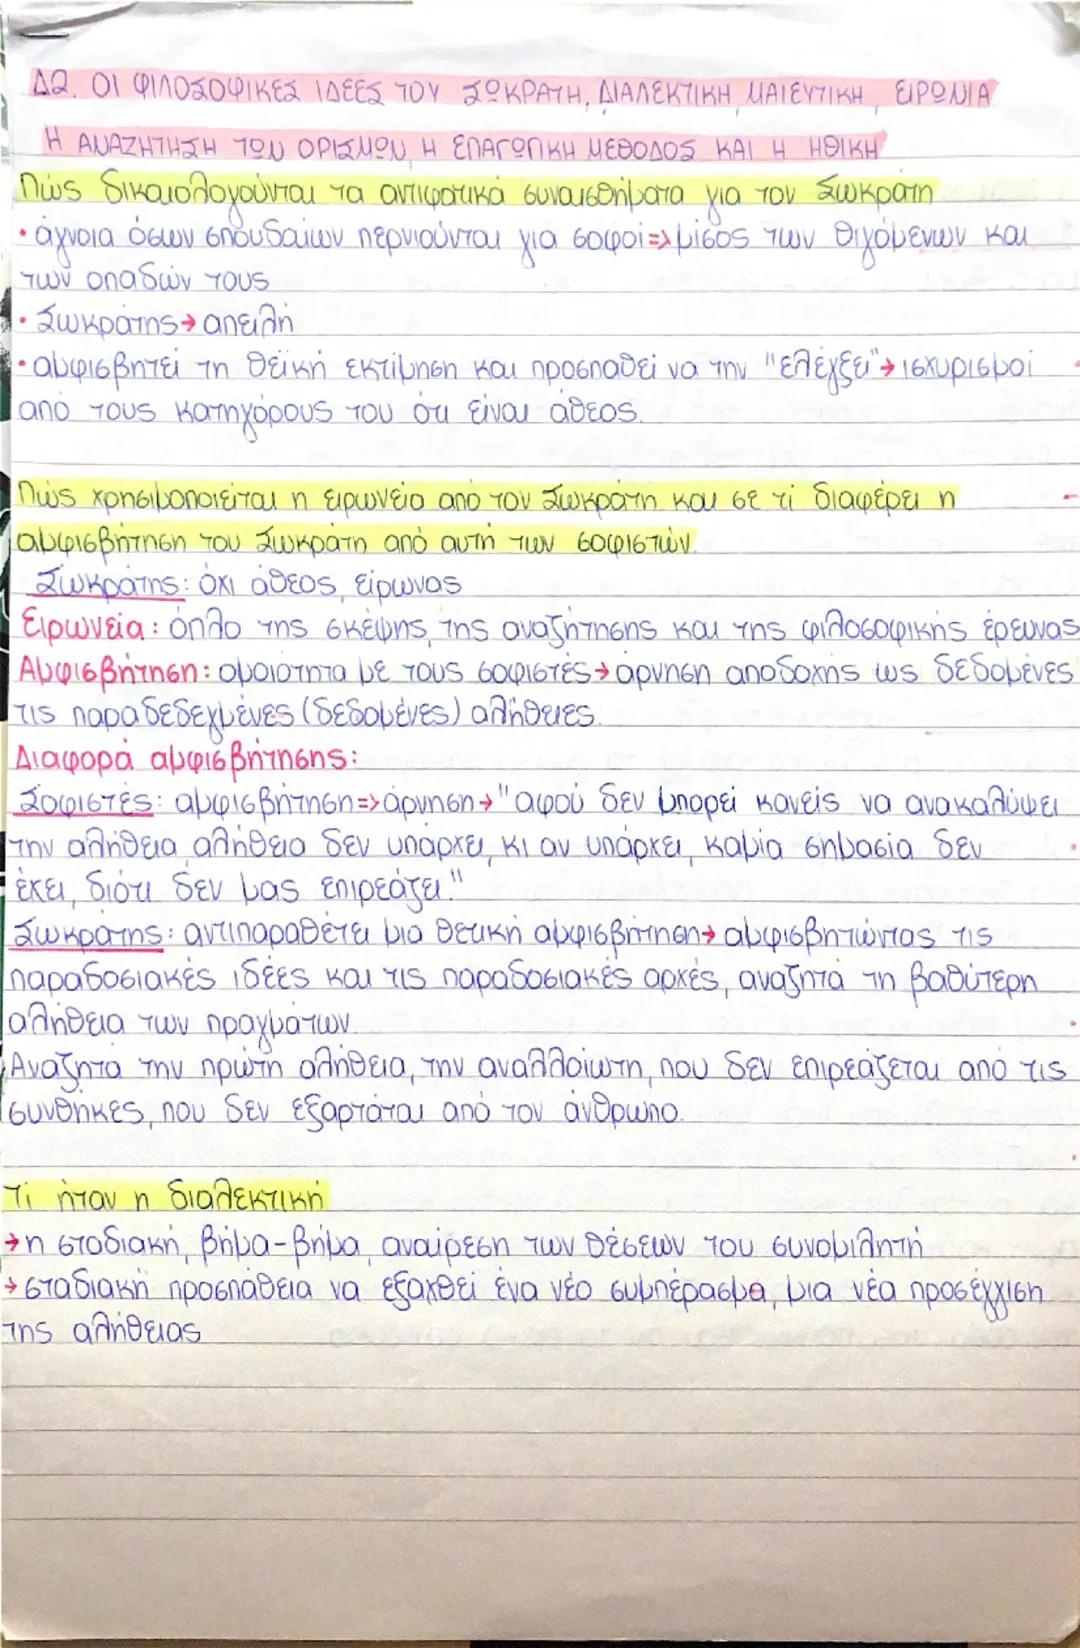 Δ2. ΟΙ ΦΙΛΟΣΟΦΙΚΕΣ ΙΔΕΕΣ ΤΟΥ ΣΩΚΡΑΤΗ, ΔΙΑΛΕΚΤΙΚΗ, ΜΑΙΕΥΤΙΚΗ, ΕΙΡΩΝΙΑ
Η ΑΝΑΖΗΤΗΣΗ ΤΩΝ ΟΡΙΣΜΩΝ, Η ΕΠΑΓΩΓΙΚΗ ΜΕΘΟΔΟΣ ΚΑΙ Η ΗΘΙΚΗ
Πώς δικαιολογούνται τα αντιφατικά συναισθήματα για τον Σωκράτη
• άγνοια όσων σπουδαίων περνιούνται για σοφοί=>μίσος των θιγόμενων και
των οπαδών τους
• Σωκράτης→απειλή
• αμφισβητεί τη θεϊκή εκτίμηση και προσπαθεί να την "ελέγξει"→ισχυρισμοί
από τους κατηγόρους του ότι είναι άθεος.
Πώς χρησιμοποιείται η ειρωνεία από τον Σωκράτη και σε τί διαφέρει η
αμφισβήτηση του Σωκράτη από αυτή των σοφιστών.
Σωκράτης: όχι άθεος, είρωνας
Ειρωνεία: όπλο της σκέψης, της αναζήτησης και της φιλοσοφικής έρευνας
Αμφισβήτηση: ομοιότητα με τους σοφιστές→άρνηση αποδοχής ως δεδομένες
τις παραδεδεγμένες (δεδομένες) αλήθειες.
Διαφορά αμφισβήτησης:
Σοφιστές: αμφισβήτηση=>άρνηση→"αφού δεν μπορεί κανείς να ανακαλύψει
την αλήθεια, αλήθεια δεν υπάρχει, κι αν υπάρχει, καμία σημασία δεν
έχει, διότι δεν μας επιρεάζει."
Σωκράτης: αντιπαραθέτει μια θετική αμφισβήτηση→αμφισβητώντας τις
παραδοσιακές ιδέες και τις παραδοσιακές αρχές, αναζητά τη βαθύτερη
αλήθεια των πραγμάτων.
Αναζητά την πρώτη αλήθεια, την αναλλοίωτη, που δεν επιρεάζεται από τις
συνθήκες, που δεν εξαρτάται από τον άνθρωπο.
Τί ήταν η διαλεκτική
→η σταδιακή, βήμα-βήμα, αναίρεση των θέσεων του συνομιλητή
→σταδιακή προσπάθεια να εξαχθεί ένα νέο συμπέρασμα, μια νέα προσέγγιση
της αλήθειας